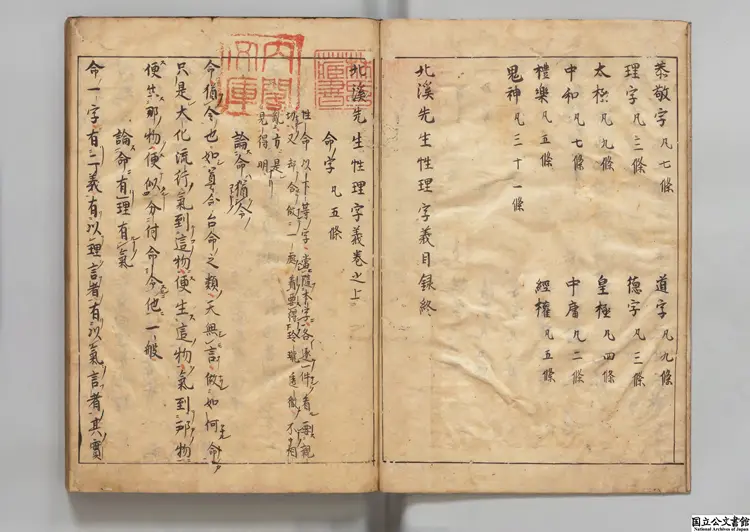 恭敬字 凡七條 道字 凡九條
理字 凡三條 德字 凡三條
太極 凡九條 皇極 凡四條
中和 凡七條 中庸 凡二條
禮樂 凡五條 經權 凡五條
鬼神 凡三十一條
北溪先生性理字義目録終
北溪先生性理字義卷之上
命字 凡五條
性命以下等字當隨本字各逐一件看剖親
切又却合做一處看要得玲瓏透徹不相
亂方是
見得明
論命猶令
命猶令也如尊命台命之類天無言做如何命
只是大化流行氣到這物便生這物氣到那物
便生那物便似分付命令他一般
論命有理有氣
命一字有二義有以理言者有以氣言者其實
内閣文庫
国立公文書館
National Archives of Japan